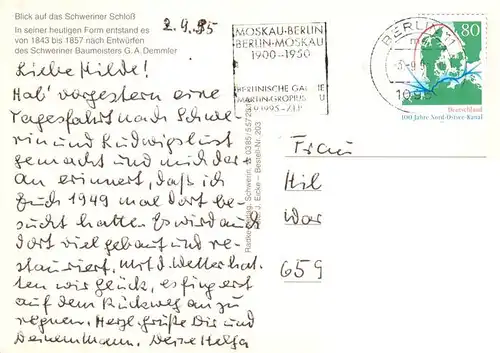 Blick auf das Schweriner Schloß
In seiner heutigen Form entstand es
von 1843 bis 1857 nach Entwürfen
des Schweriner Baumeisters G. A. Demmler
2.9.95
Liebe Hilde!
Hab' vorgestern eine
Tagesfahrt nach Schwe-
rin und Ludwigslust
gemacht und mich dar-
an erinnert, daß ich
Euch 1949 mal dort be-
sucht hatte. Es wird auch
dort viel gebaut und re-
stauriert. Mit d. Wetter hat-
ten wir Glück, es fing erst
auf dem Rückweg an zu
regnen. Herzl. Grüße Dir und
Deinem Mann. Deine Helga
MOSKAU-BERLIN
BERLIN-MOSKAU
1900-1950
BERLINISCHE
MARTIN-GROPIUS
BERLIN
80
Deutschland
100 Jahre Nord-Ostsee-Kanal
Schwerin, ☎ 0385/
J. Eicke – Bestell-Nr. 203
Frau
Hil
War
659